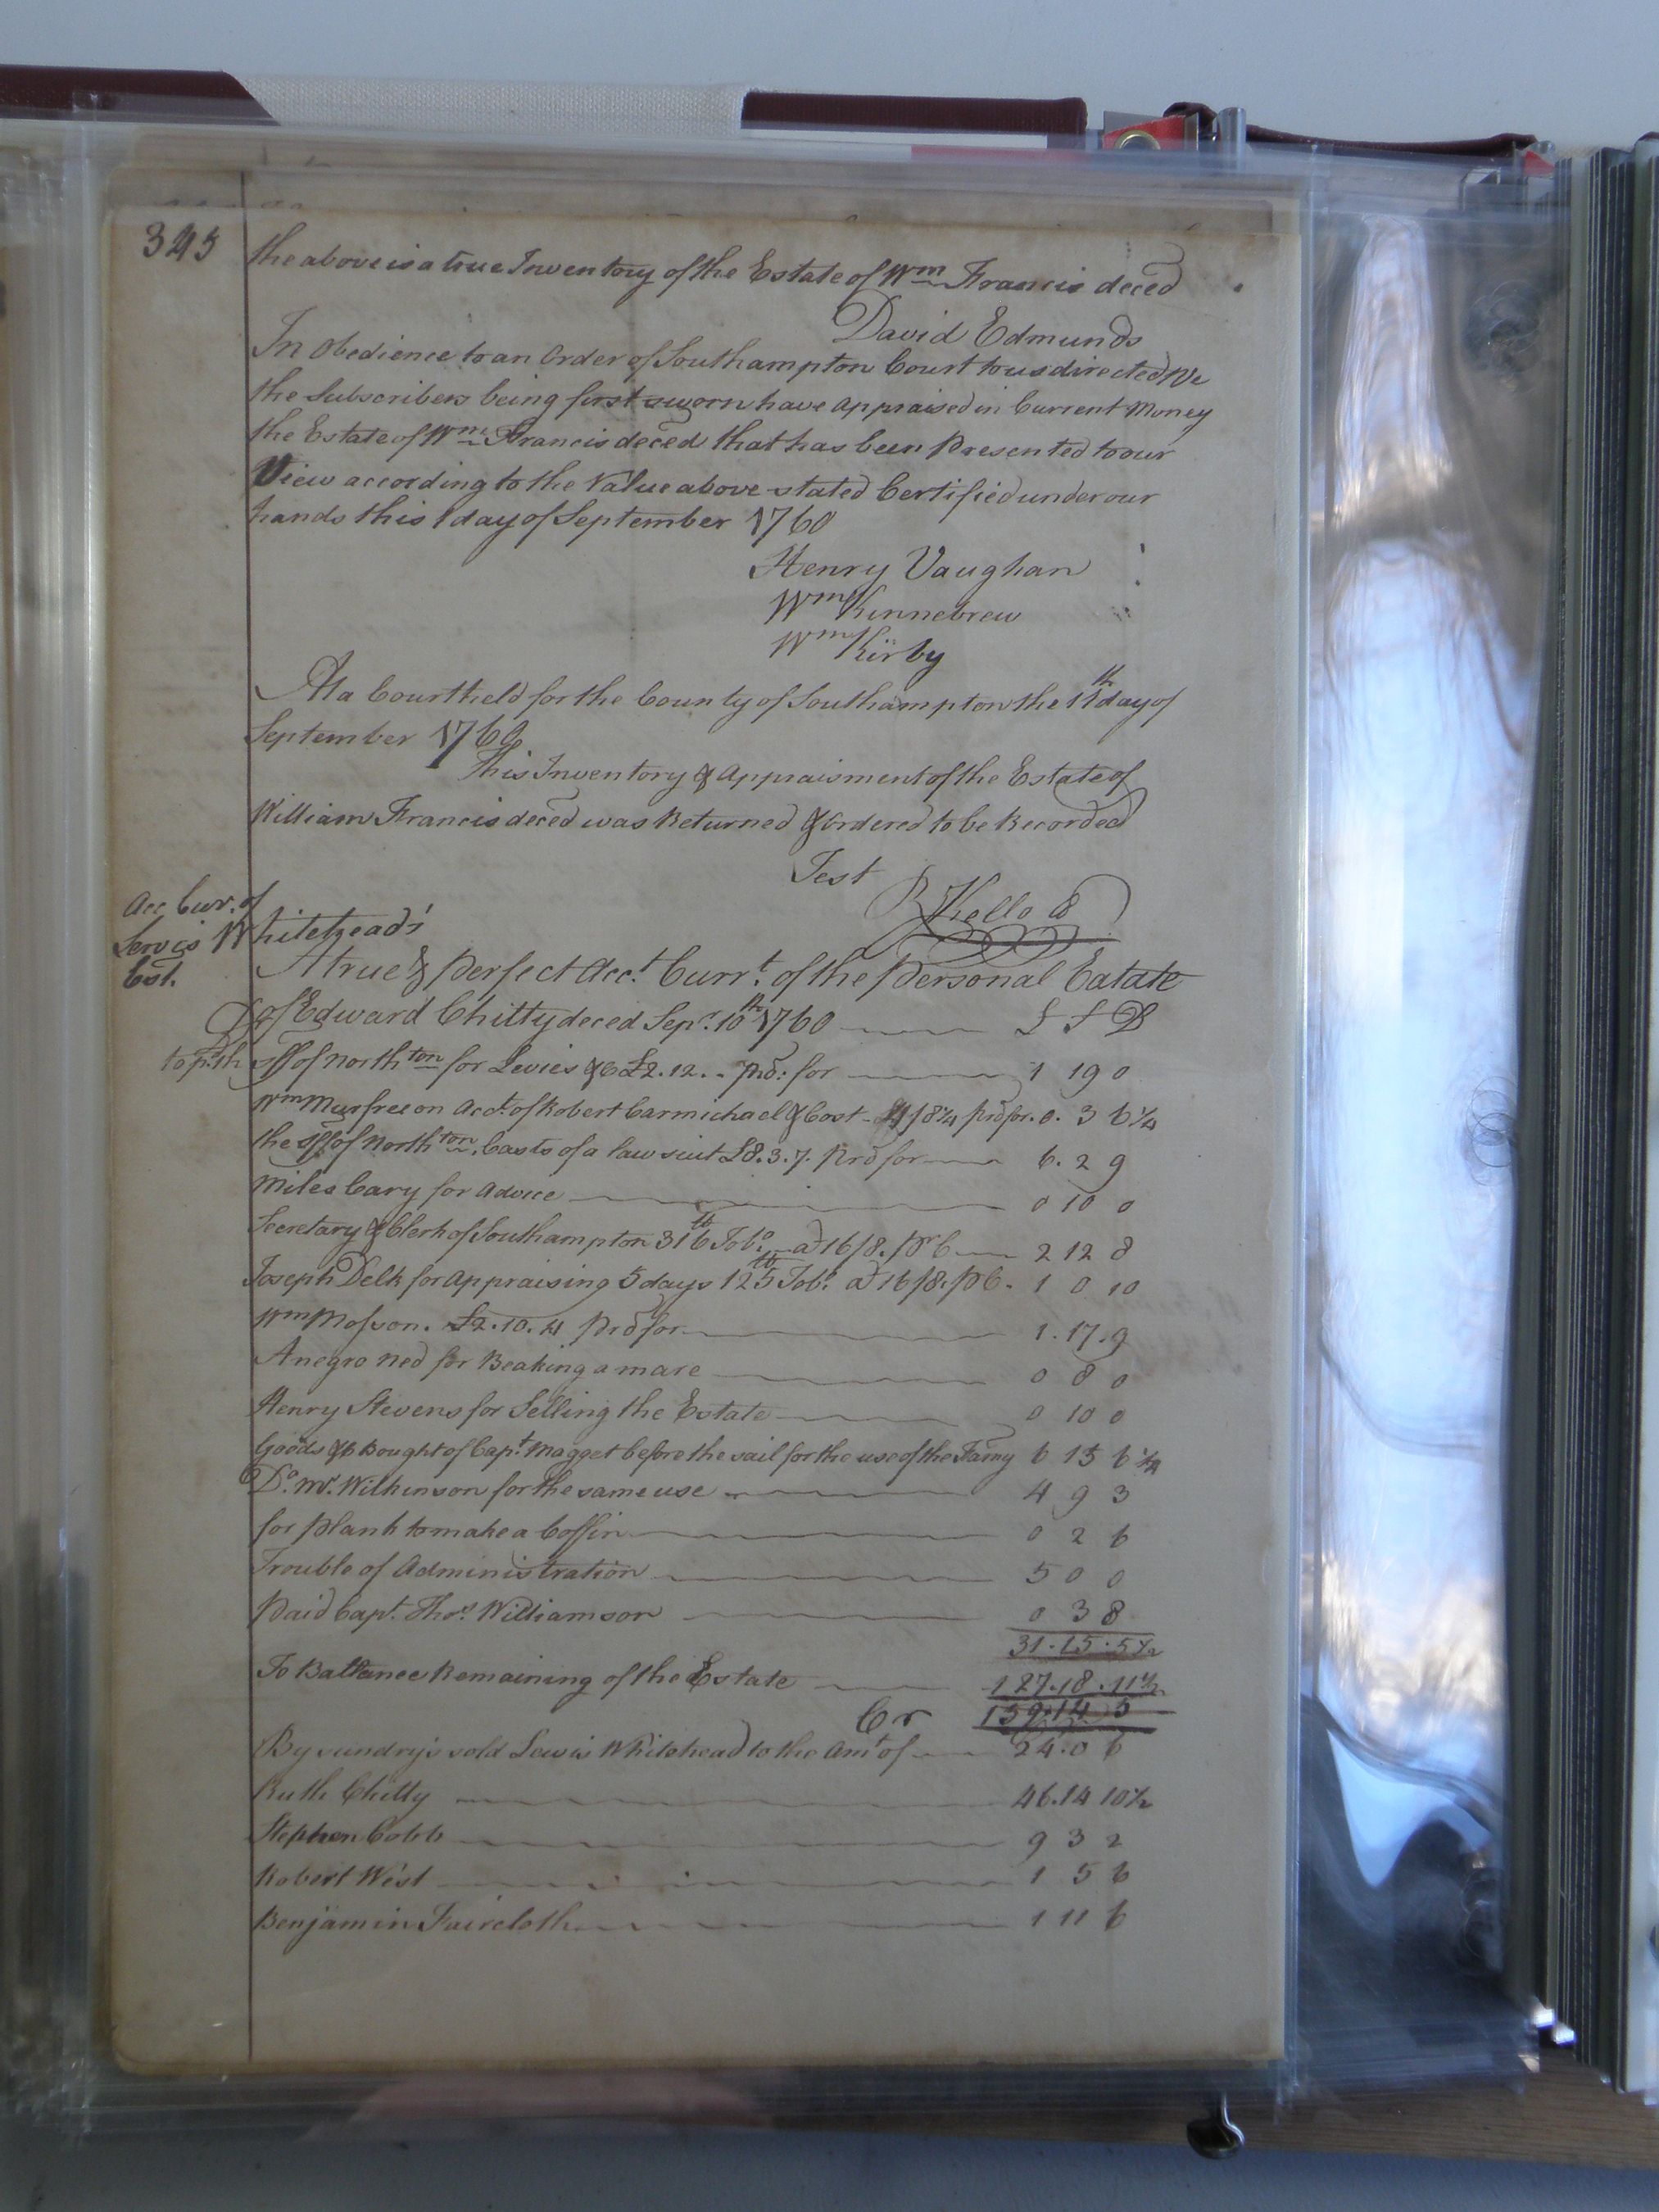 345
the above is a true Inventory of the Estate of Wm Francis deced
David Edmunds
In Obedience to an Order of Southampton Court to us directed We
the Subscribers being first sworn have Appraised in Current Money
the Estate of Wm Francis deced that has been Presented to our
View according to the Value above stated Certified under our
hands this 1 day of September 1760
Henry Vaughan
Wm Kinnebrew
Wm Kirby
At a Court held for the County of Southampton the 11th day of
September 1760
This Inventory & Appraisment of the Estate of
William Francis deced was Returned & Ordered to be Recorded
Test
R Kello C
Acc Curr. of
Lewis Whitehead's
Est.
A true & Perfect Acct. Currt. of the Personal Eatate
Dr of Edward Chitty deced Sepr. 10th 1760 £ S D
to pd. th Sff of Northton for Levies &c £2.12.- Prd: for 1 19 0
Wm Murfree on Acct. of Robert Carmichael & Cost 4/8 1/4 Prd for. 0. 3 6 1/4
the Sff of Northton. Casts of a law suit £8.3.7. Prd for 6. 2 9
Miles Cary for Advice 0 10 0
Secretary & Clerk of Southampton 316 lb Tobo. ad 16/8. Pr C 2 12 8
Joseph Delk for Appraising 5 days 125 lb Tobo. ad 16/8. P C. 1 0 10
Wm Mosson. £2.10.4 Prd for 1.17.9
A negro Ned for Beaking a mare 0 8 0
Henry Stevens for Selling the Estate 0 10 0
Goods &c Bought of Capt. Magget before the sail for the use of the Famy 6 15 6 1/4
Do. Mr. Wilkinson for the same use 4 9 3
for Plank to make a Coffin 0 2 6
Trouble of Administration 5 0 0
Paid Capt. Thos. Williamson 0 3 8
31.15.5 1/2
To Ballance Remaining of the Estate 127.18.11 1/2
Cr 159.14 5
By sundrys sold Lewis Whitehead to the Amt of 24.0 6
Ruth Chitty 46.14 10 1/2
Stephen Cobb 9 3 2
Robert West 1 5 6
Benjamin Faircloth 1 11 6